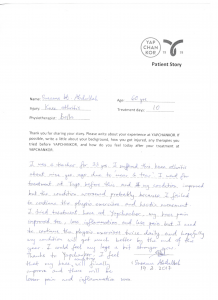 YAP
CHAN
KOR
Patient Story
Name: H. Abdullah
Age: 60 yrs
Injury: Knee
Treatment days: 10
Physiotherapist:
Thank you for sharing your story. Please write about your experience at YAPCHANKOR. If
possible, write a little about your background, how you got injured, any therapies you
tried before YAPCHANKOR, and how do you feel today after your treatment at
YAPCHANKOR.
I was a teacher for 33 yrs. I suffered the knee
about one yr ago due to I went for
treatment at before this and my condition improved
but the condition worsened probably because I forgot
to continue the physio exercises and
I had treatment here at Yapchankor, my knee pain
improved too, less inflammation and less pain but I need
to continue the physio exercises twice daily and hopefully
my condition will get much better by the end of the
year. I could feel my legs a bit stronger now.
Thanks to Yapchankor I feel
that my knee will finally
improve and there will be
lesser pain and inflammation